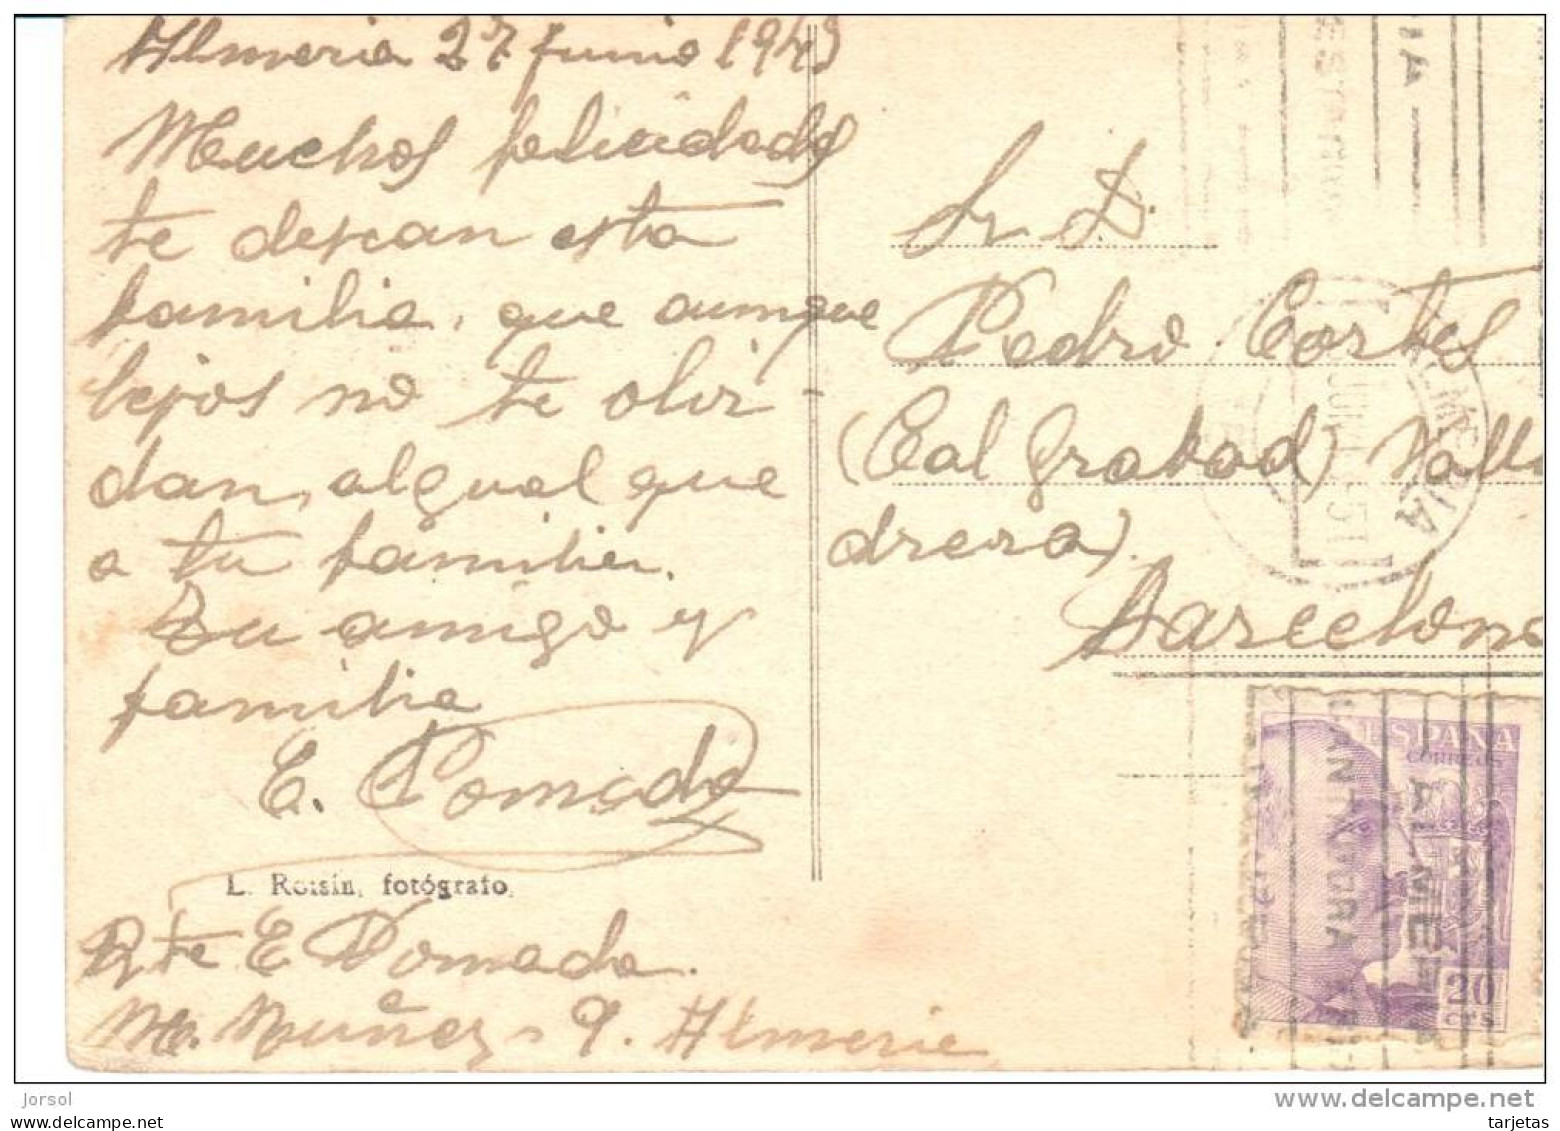 Almeria 27 Junio 1943
Muchos felicidades
te desean esta
familia, que aunque
lejos no te olvi-
dan, algual que
a tu familia.
Tu amigo y
familia
E. Pomedo
L. Roisin, fotógrafo.
Rte E Pomeda.
Ma. Muñoz - 9. Almeria
Sr D.
Pedro Cortes
(Cal Grabad) Vallvi
drera).
Barcelona
ALMERIA
ESPAÑA
CORREOS
20
CTS
Jorsol
www.delcampe.net
tarjetas